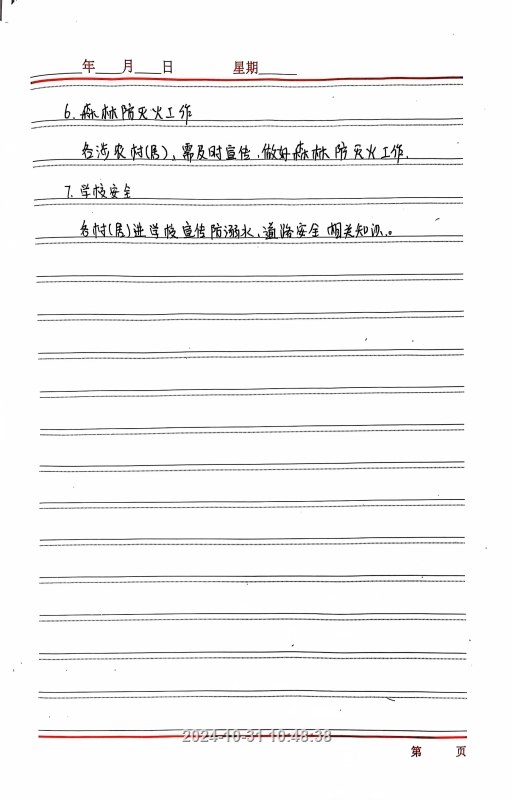 年 月 日 星期
6. 森林防灭火工作
各涉农村(居)，需及时宣传，做好森林防灭火工作.
7. 学校安全
各村(居)进学校宣传防溺水、道路安全相关知识。
2024-10-31 10:48:38
第 页